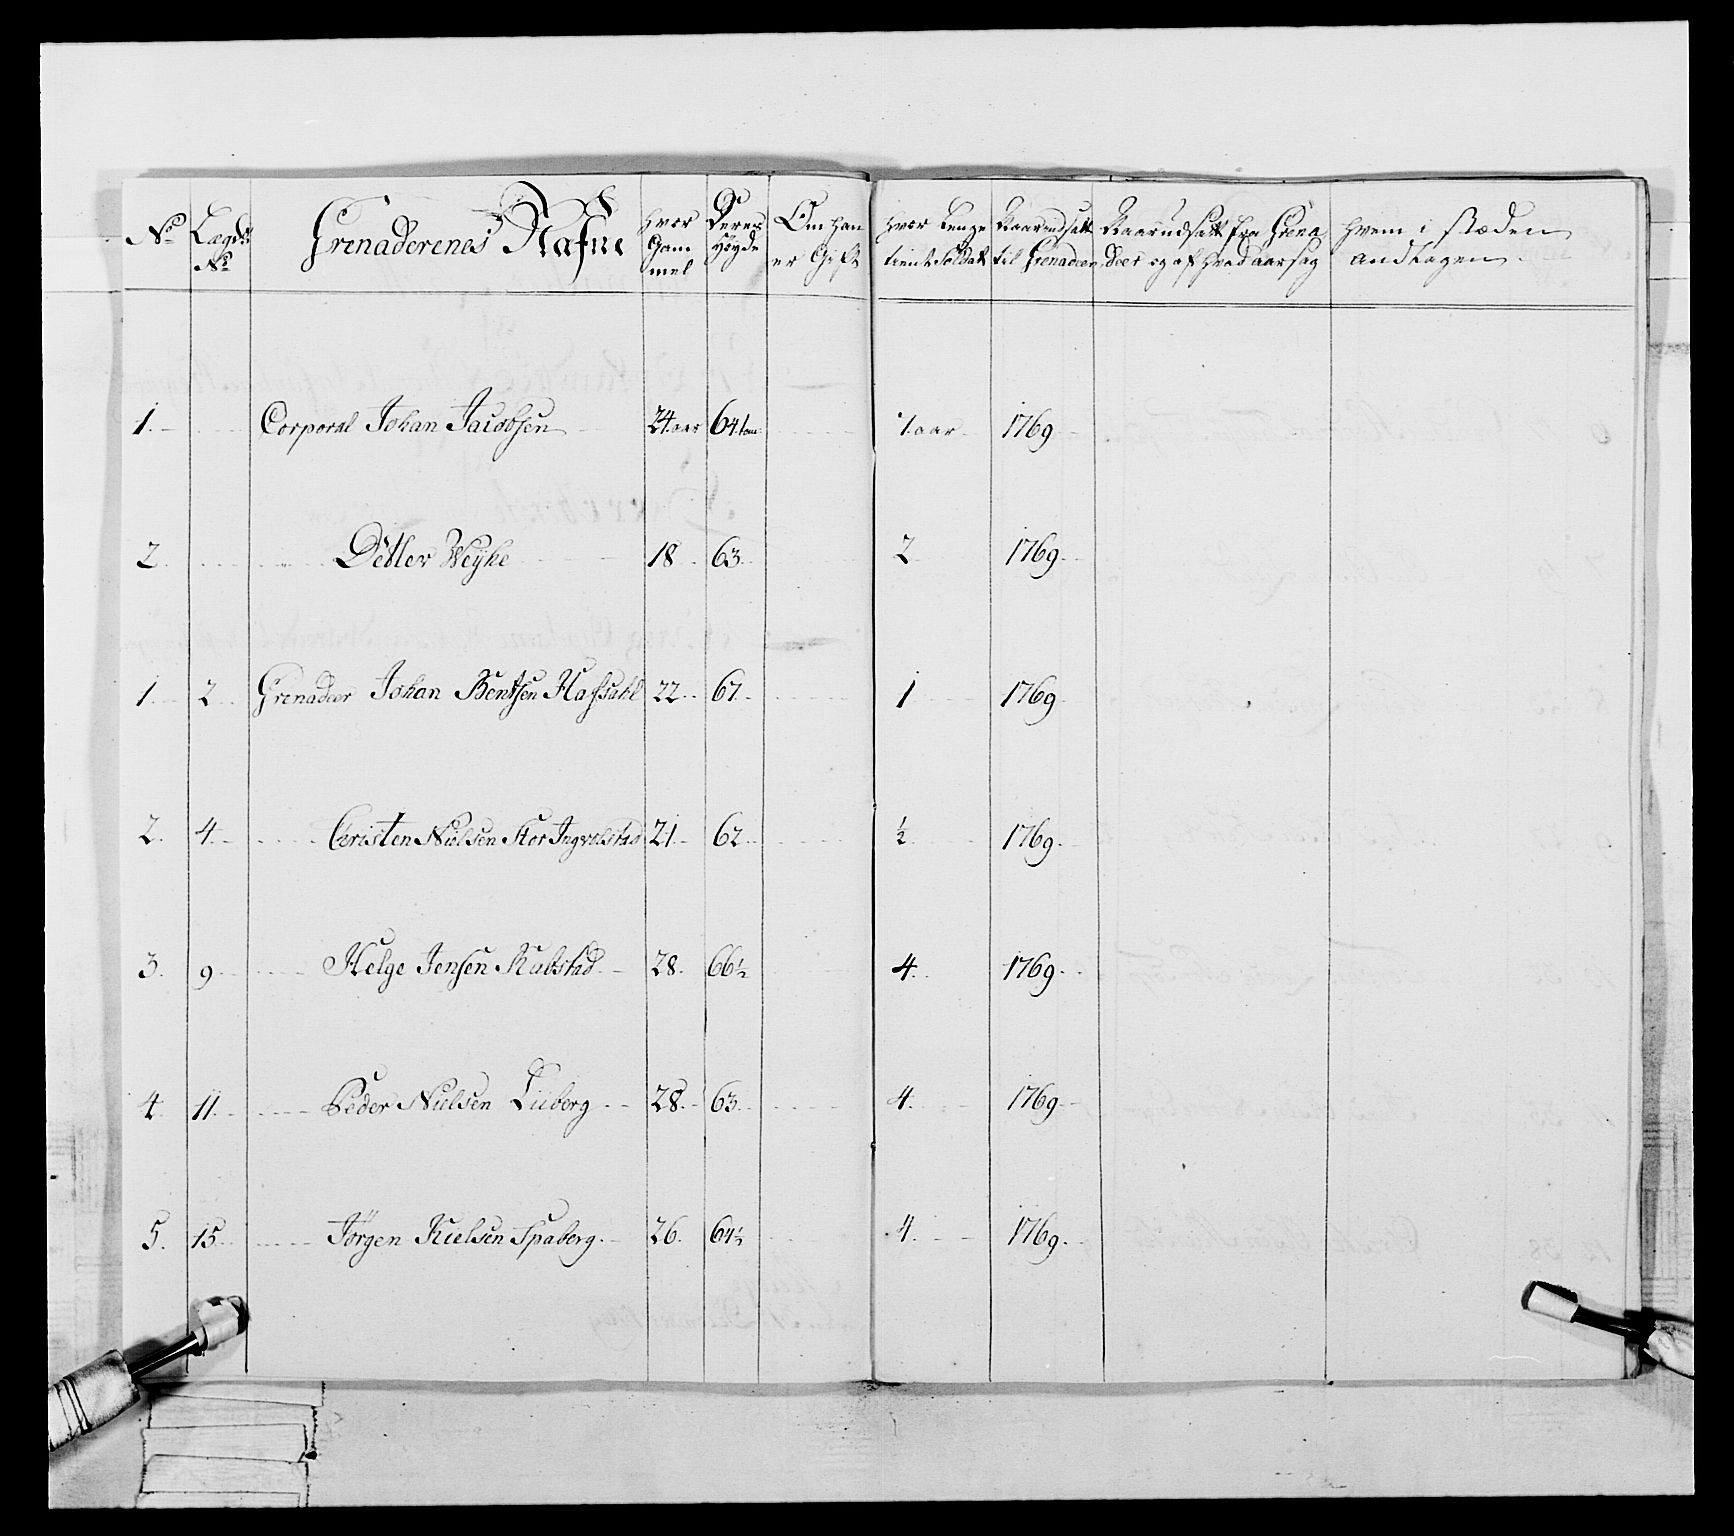 No Lægds No Grenaderenes Nafne hvor Gammel Deres Høyde Om han er Gift hvor lenge tient Soldat Naar udsatt til Grenadeer Naar udsatt fra Grenadeer og af hvad aarsag hvem i stæden andtagen
1. Corporal Johan Jacobsen 24 aar 64 tom 7 aar 1769
2. Detler Weyhe 18 63 2 1769
1. 2 Grenadeer Johan Bentsen Hafsahl 22 67 1 1769
2. 4 Christen Nielsen Stor Ingvolstad 21 62 ½ 1769
3. 9 Helge Jensen Rabstad 28. 66½ 4 1769
4. 11 Peder Nielsen Tuberg 28 63 4. 1769
5. 15 Jørgen Nielsen Spaberg 26. 64½ 4. 1769